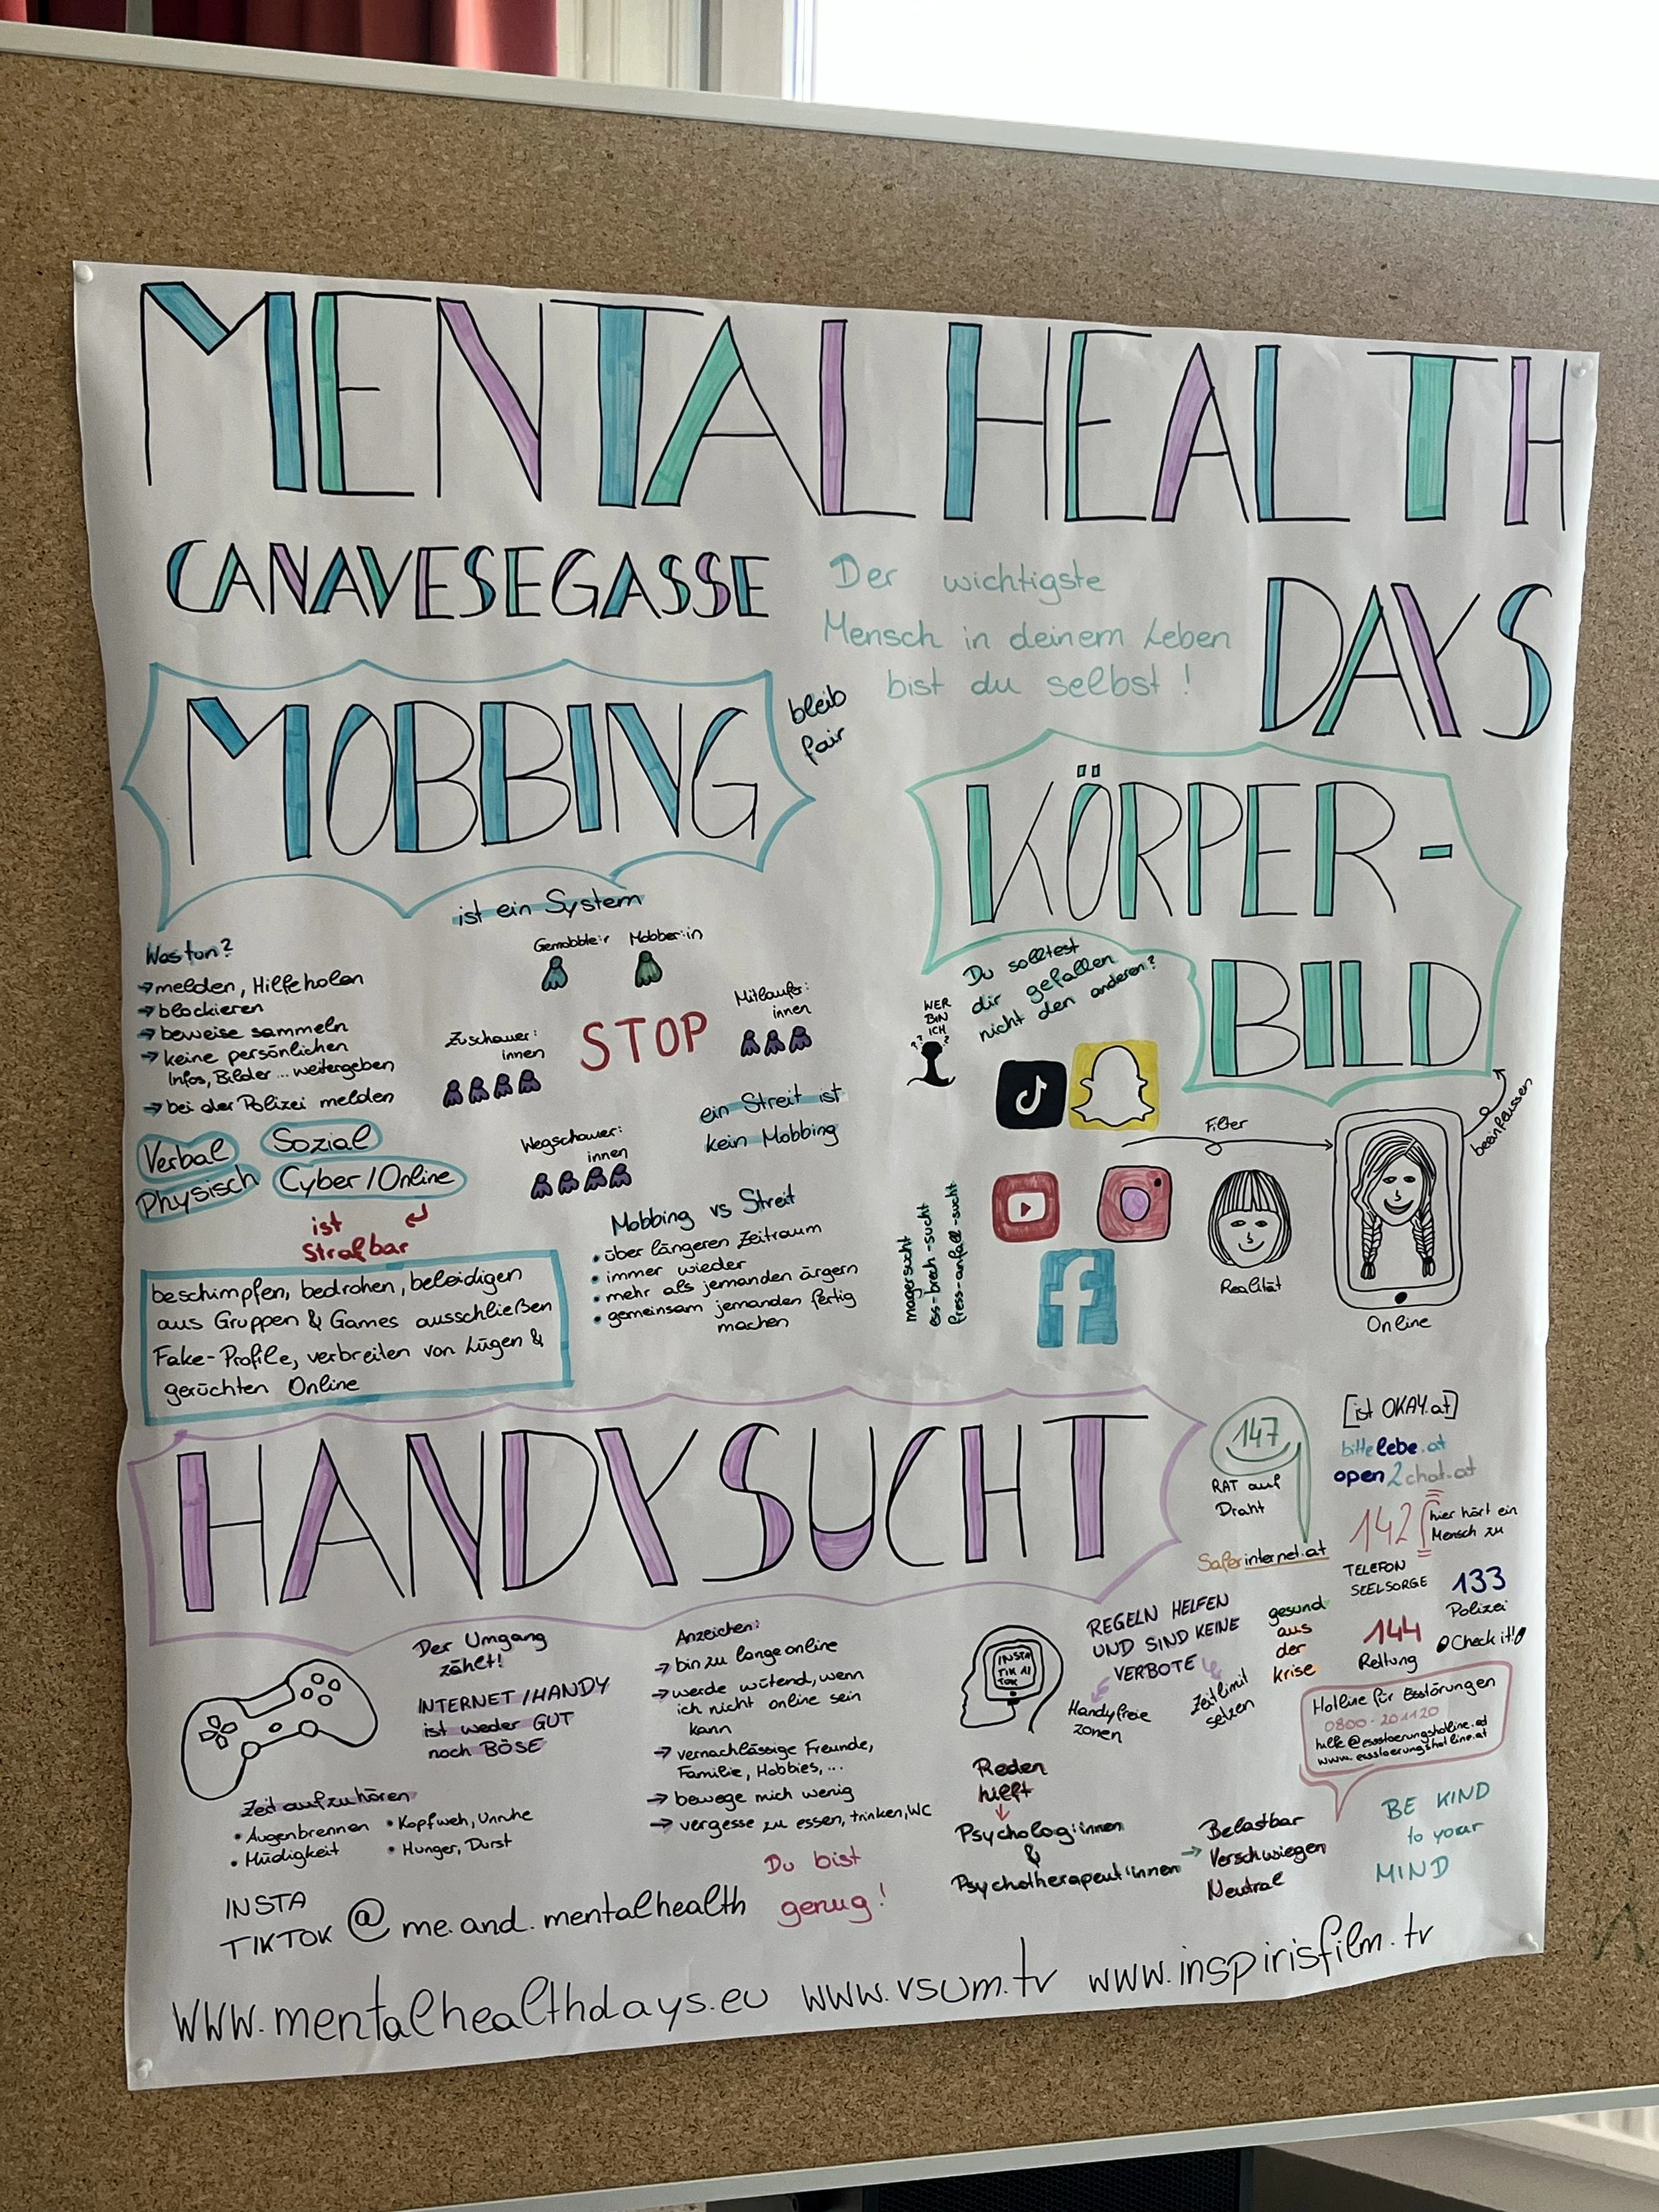 MENTAL HEALTH
DAYS
CANAVESEGASSE
Der wichtigste
Mensch in deinem Leben
bist du selbst!
MOBBING
bleib
fair
ist ein System
Was tun?
→ melden, Hilfe holen
→ blockieren
→ beweise sammeln
→ keine persönlichen
Infos, Bilder... weitergeben
→ bei der Polizei melden
Gemobbte:r
Mobber:in
Zuschauer:
innen
STOP
Mitläufer:
innen
Wegschauer:
innen
ein Streit ist
kein Mobbing
Verbal
Sozial
Physisch
Cyber/Online
ist
Strafbar
beschimpfen, bedrohen, beleidigen
aus Gruppen & Games ausschließen
Fake-Profile, verbreiten von Lügen &
gerüchten Online
Mobbing vs Streit
• über längeren Zeitraum
• immer wieder
• mehr als jemanden ärgern
• gemeinsam jemanden fertig
machen
KÖRPER-
BILD
Du solltest
dir gefallen
nicht den anderen?
WER
BIN
ICH
???
Filter
beeinflussen
Realität
Online
magersucht
ess-brech-sucht
fress-anfall-sucht
HANDYSUCHT
Der Umgang
zählt!
INTERNET/HANDY
ist weder GUT
noch BÖSE
Zeit aufzuhören
• Augenbrennen
• Müdigkeit
• Kopfweh, Unruhe
• Hunger, Durst
Anzeichen:
→ bin zu lange online
→ werde wütend, wenn
ich nicht online sein
kann
→ vernachlässige Freunde,
Familie, Hobbies,...
→ bewege mich wenig
→ vergesse zu essen, trinken, WC
INSTA
TIK AI
TOK
REGELN HELFEN
UND SIND KEINE
VERBOTE
Handyfreie
zonen
Zeitlimit
setzen
Reden
hilft
Psycholog:innen
&
Psychotherapeut:innen
→ Belastbar
Verschwiegen
Neutral
147
RAT auf
Draht
[ist OKAY.at]
bittelebe.at
open2chat.at
142
hier hört ein
Mensch zu
TELEFON
SEELSORGE
Saferinternet.at
133
Polizei
gesund
aus
der
krise
144
Rettung
Check it!
Hotline für Essstörungen
0800-201120
www.essstoerungshotline.at
BE KIND
to your
MIND
Du bist
genug!
INSTA
TIKTOK @me.and.mentalhealth
www.mentalhealthdays.eu www.vsum.tv www.inspirisfilm.tv